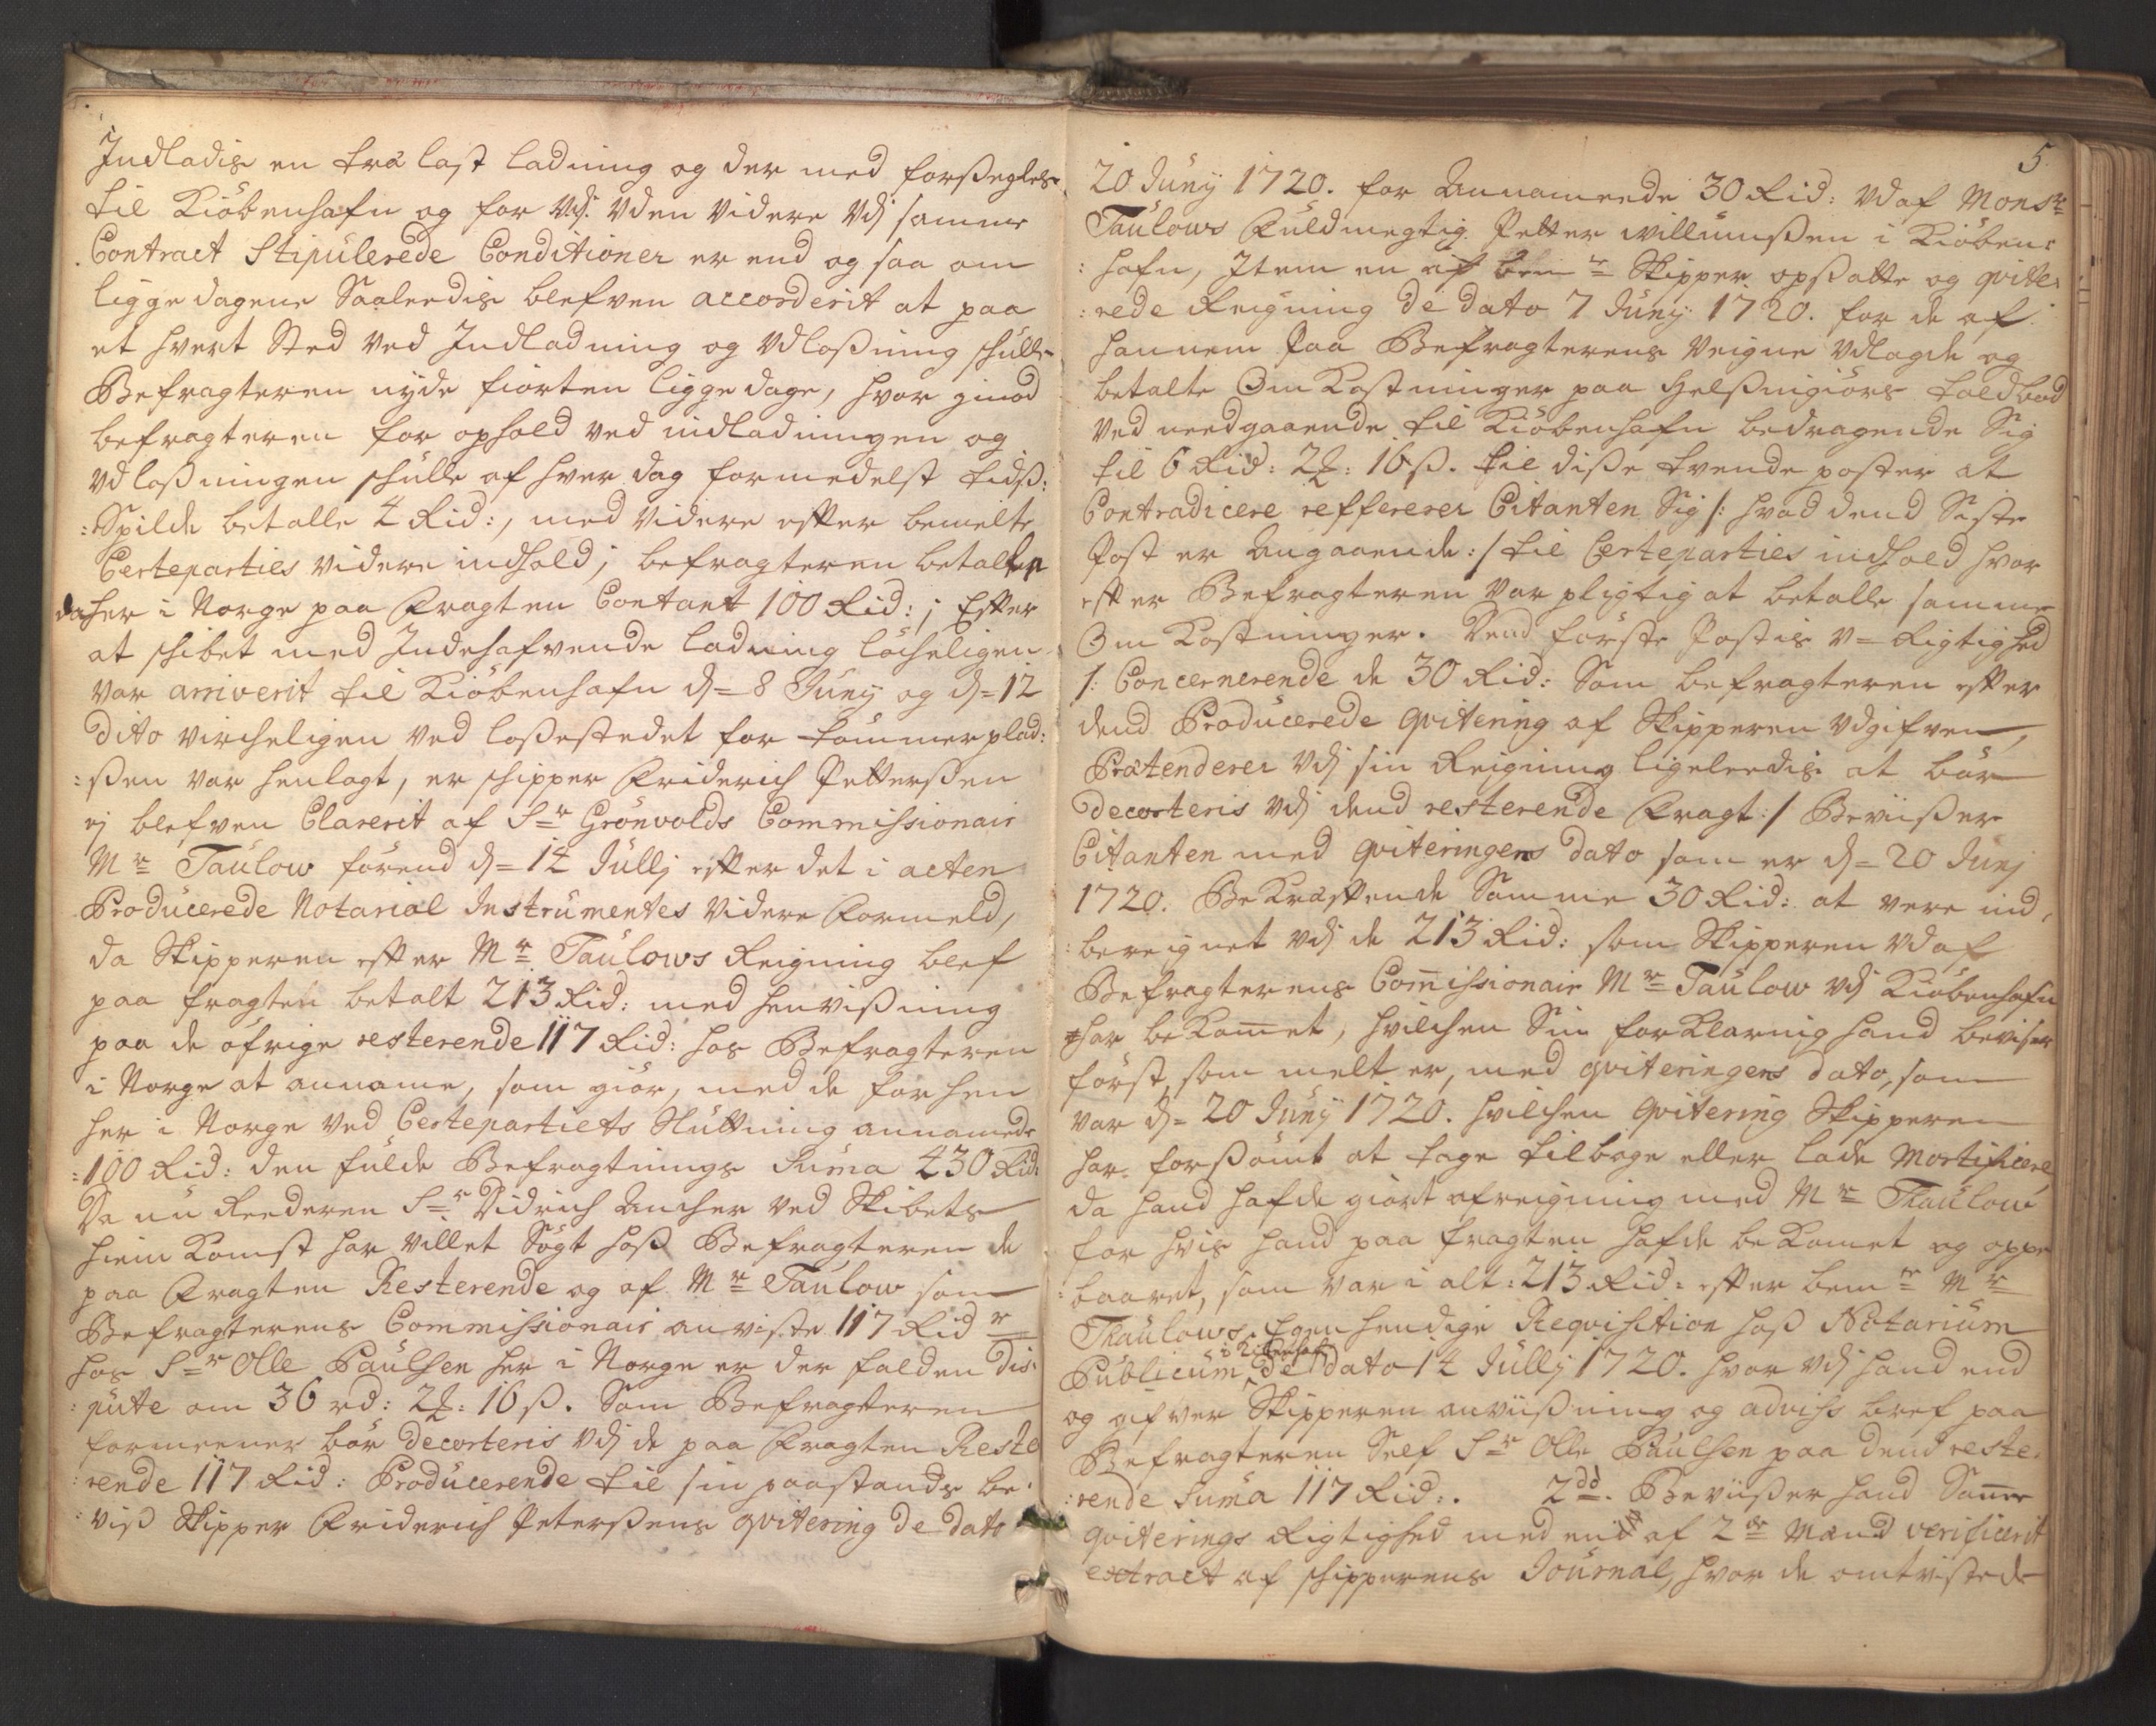 Indladis en træ last ladning og der med forsegles
til Kiöbenhafn og for Vdj: Vden Videre Vdj samme
Contract Stipulerede Conditioner er end og saa om
ligge dagene Saaleedis blefven accorderit at paa
et hvert Sted Ved Indladning og Vdlossning schulle
Befragteren nyde fiorten ligge dage, hvor imod
befragteren for ophold ved indladningen og
Vdlossningen schulle af hver dag formedelst tids:
:Spilde betalle 4 Rid:, med Videre efter bemelte
Certeparties videre indhold; befragteren betalte
da her i Norge paa Fragten Contant 100 Rid:; Efter
at schibet med Indehafvende ladning löcheligen
Var arriverit til Kiöbenhafn d= 8 Junij og d= 12
dito vircheligen ved lossestedet for tömmerplad:
:ssen var henlagt, er schipper Friderich Petterssen
ej blefven Clarerit af Sr Grönvolds Commissionair
Mr Taulow förend d= 14 Jullj efter det i acten
Producerede Notarial Instrumentes Videre Formeld,
da Skipperen efter Mr Taulows Reigning blef
paa fragten betalt 213 Rid: med henvissning
paa de öfrige resterende 117 Rid: hos Befragteren
i Norge at anname, som giör, med de forhen
her i Norge ved Certepartiets Sluttning annamede
:100 Rid: den fulde Befragtnings Suma 430 Rid:
Da nu Reederen Sr Didrich Ancher ved Skibets
hiem Komst har villet Sögt hoss Befragteren de
paa Fragten Resterende og af Mr Taulow som
Befragterens Commissionair anviste 117 Rid r
hos Sr Olle Paulsen her i Norge er der falden dis:
:pute om 36 rd: 2 ʒ: 16 ß. Som Befragteren
formeener bör decorteris Vdj de paa Fragten Reste
:rende 117 Rid: Producerende til sin paastands be:
:viss Skipper Friderich Peterssens qvitering de dato
5.
20 Junij 1720. for Annameede 30 Rid: Vdaf Monsr
Taulows Fuldmegtig Petter willumssen i Kiöben:
:hafn, Item en af bem.te Skipper opssatte og qvite:
:rede Reigning de dato 7 Junij 1720. for de af
hannem paa Befragterens Veigne Vdlagde og
betalte Om Kostninger paa Helssingiörs toldbod
Ved needgaaende til Kiöbenhafn bedragende Sig
til 6 Rid: 2 ʒ: 16 ß. til disse tvende poster at
Contradicere reffererer Citanten Sig /: hvad dend Siste
Post er Angaaende :/ til Certeparties indhold hvor
efter Befragteren Var pligtig at betalle samme
Om Kostninger. Dend förste Postis V= Rigtighed
/: Concernerende de 30 Rid: Som befragteren efter
dend Producerede qvitering af Skipperen Vdgifven,
Prætenderer Vdj sin Reigning ligeleedis at bör
decorteris Vdj dend resterende Fragt :/ Bevisser
Citanten med qviteringens dato som er d= 20 Junj
1720. BeKræftende Samme 30 Rid: at vere ind,
:bereignet Vdj de 213 Rid: som Skipperen Vdaf
Befragterens Com̅issionair Mr Taulow Vdj Kiöbenhafn
har beKom̅et, hvilchen Sin forKlarnig hand beviser
först, som melt er, med qviteringens dato, som
var d= 20 Junij 1720. hvilchen qvitering Skipperen
har forssömt at tage tilbage eller lade Mortificere
da hand hafde giort afreigning med Mr Thaulow
for hvis hand paa fragten hafde beKomet og oppe
:baaret, som var i alt: 213 Rid: efter bem.te Mr
Thaulows Egenhendige Reqvisition hoss Notarium
Publicum de dato 14 Jullj 1720. hvor Vdj hand end
og gifver Skipperen anvissning og adviss bref paa
Befragteren Self Sr Olle Paulsen paa dend reste:
:rende Suma 117 Rid:. 2dd. Bevisser hand Sam̅e
qviterings Rigtighed med end af 2de Mænd verificerit
extract af schipperens Journal, hvor de omtvistede